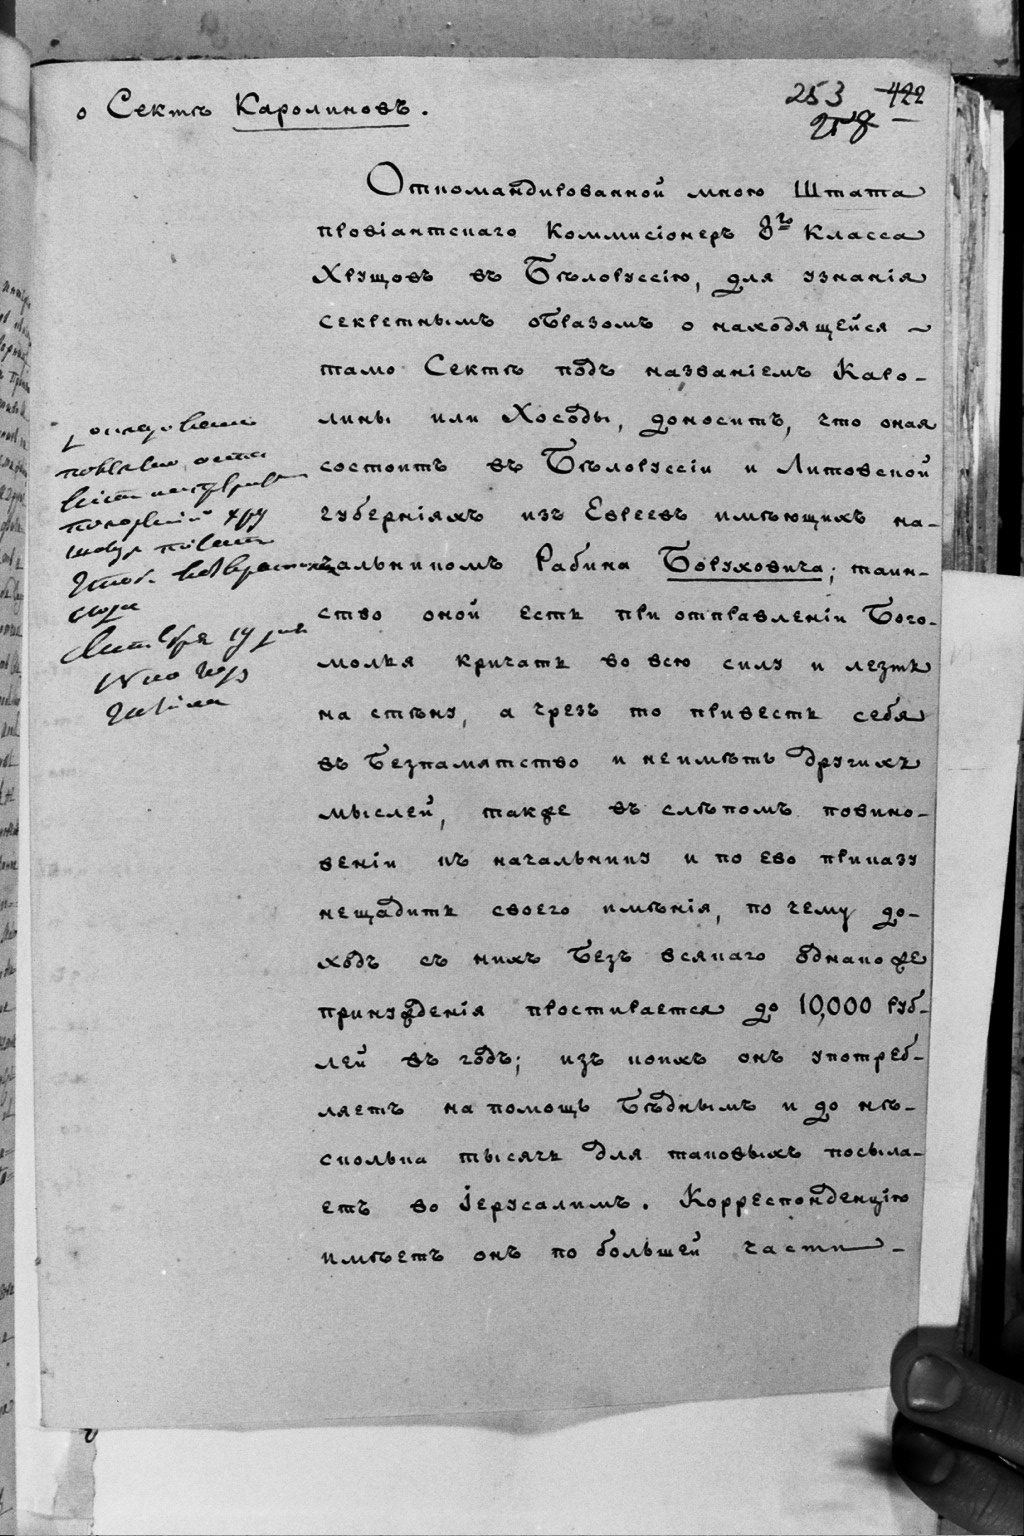 о Сектѣ Каролиновъ.
253 422
258
Откомандированной мною Штата
провіантскаго Коммисіонеръ 8го Класса
Хрущовъ въ Бѣлоруссію, для узнанія
секретнымъ образомъ о находящейся
тамо Сектѣ подъ названіемъ Каро-
лины или Хосоды, доноситъ, что оная
состоитъ въ Бѣлоруссіи и Литовской
губерніяхъ изъ Евреевъ имѣющихъ на-
чальникомъ Рабина Боруховича; таин-
ство оной есть при отправленіи Бого-
молья кричать во всю силу и лезть
на стѣну, а чрезъ то привесть себя
въ безпамятство и неимѣть другихъ
мыслей, также въ слѣпомъ повино-
веніи къ начальнику и по ево приказу
нещадить своего имѣнія, по чему до-
ходъ съ нихъ безъ всякаго однакоже
принужденія простирается до 10,000 руб-
лей въ годъ; изъ коихъ онъ употреб-
ляетъ на помощь бѣднымъ и до нѣ-
сколька тысячь для таковыхъ посыла-
етъ во Іерусалимъ. Корреспонденцію
имѣетъ онъ по большей части